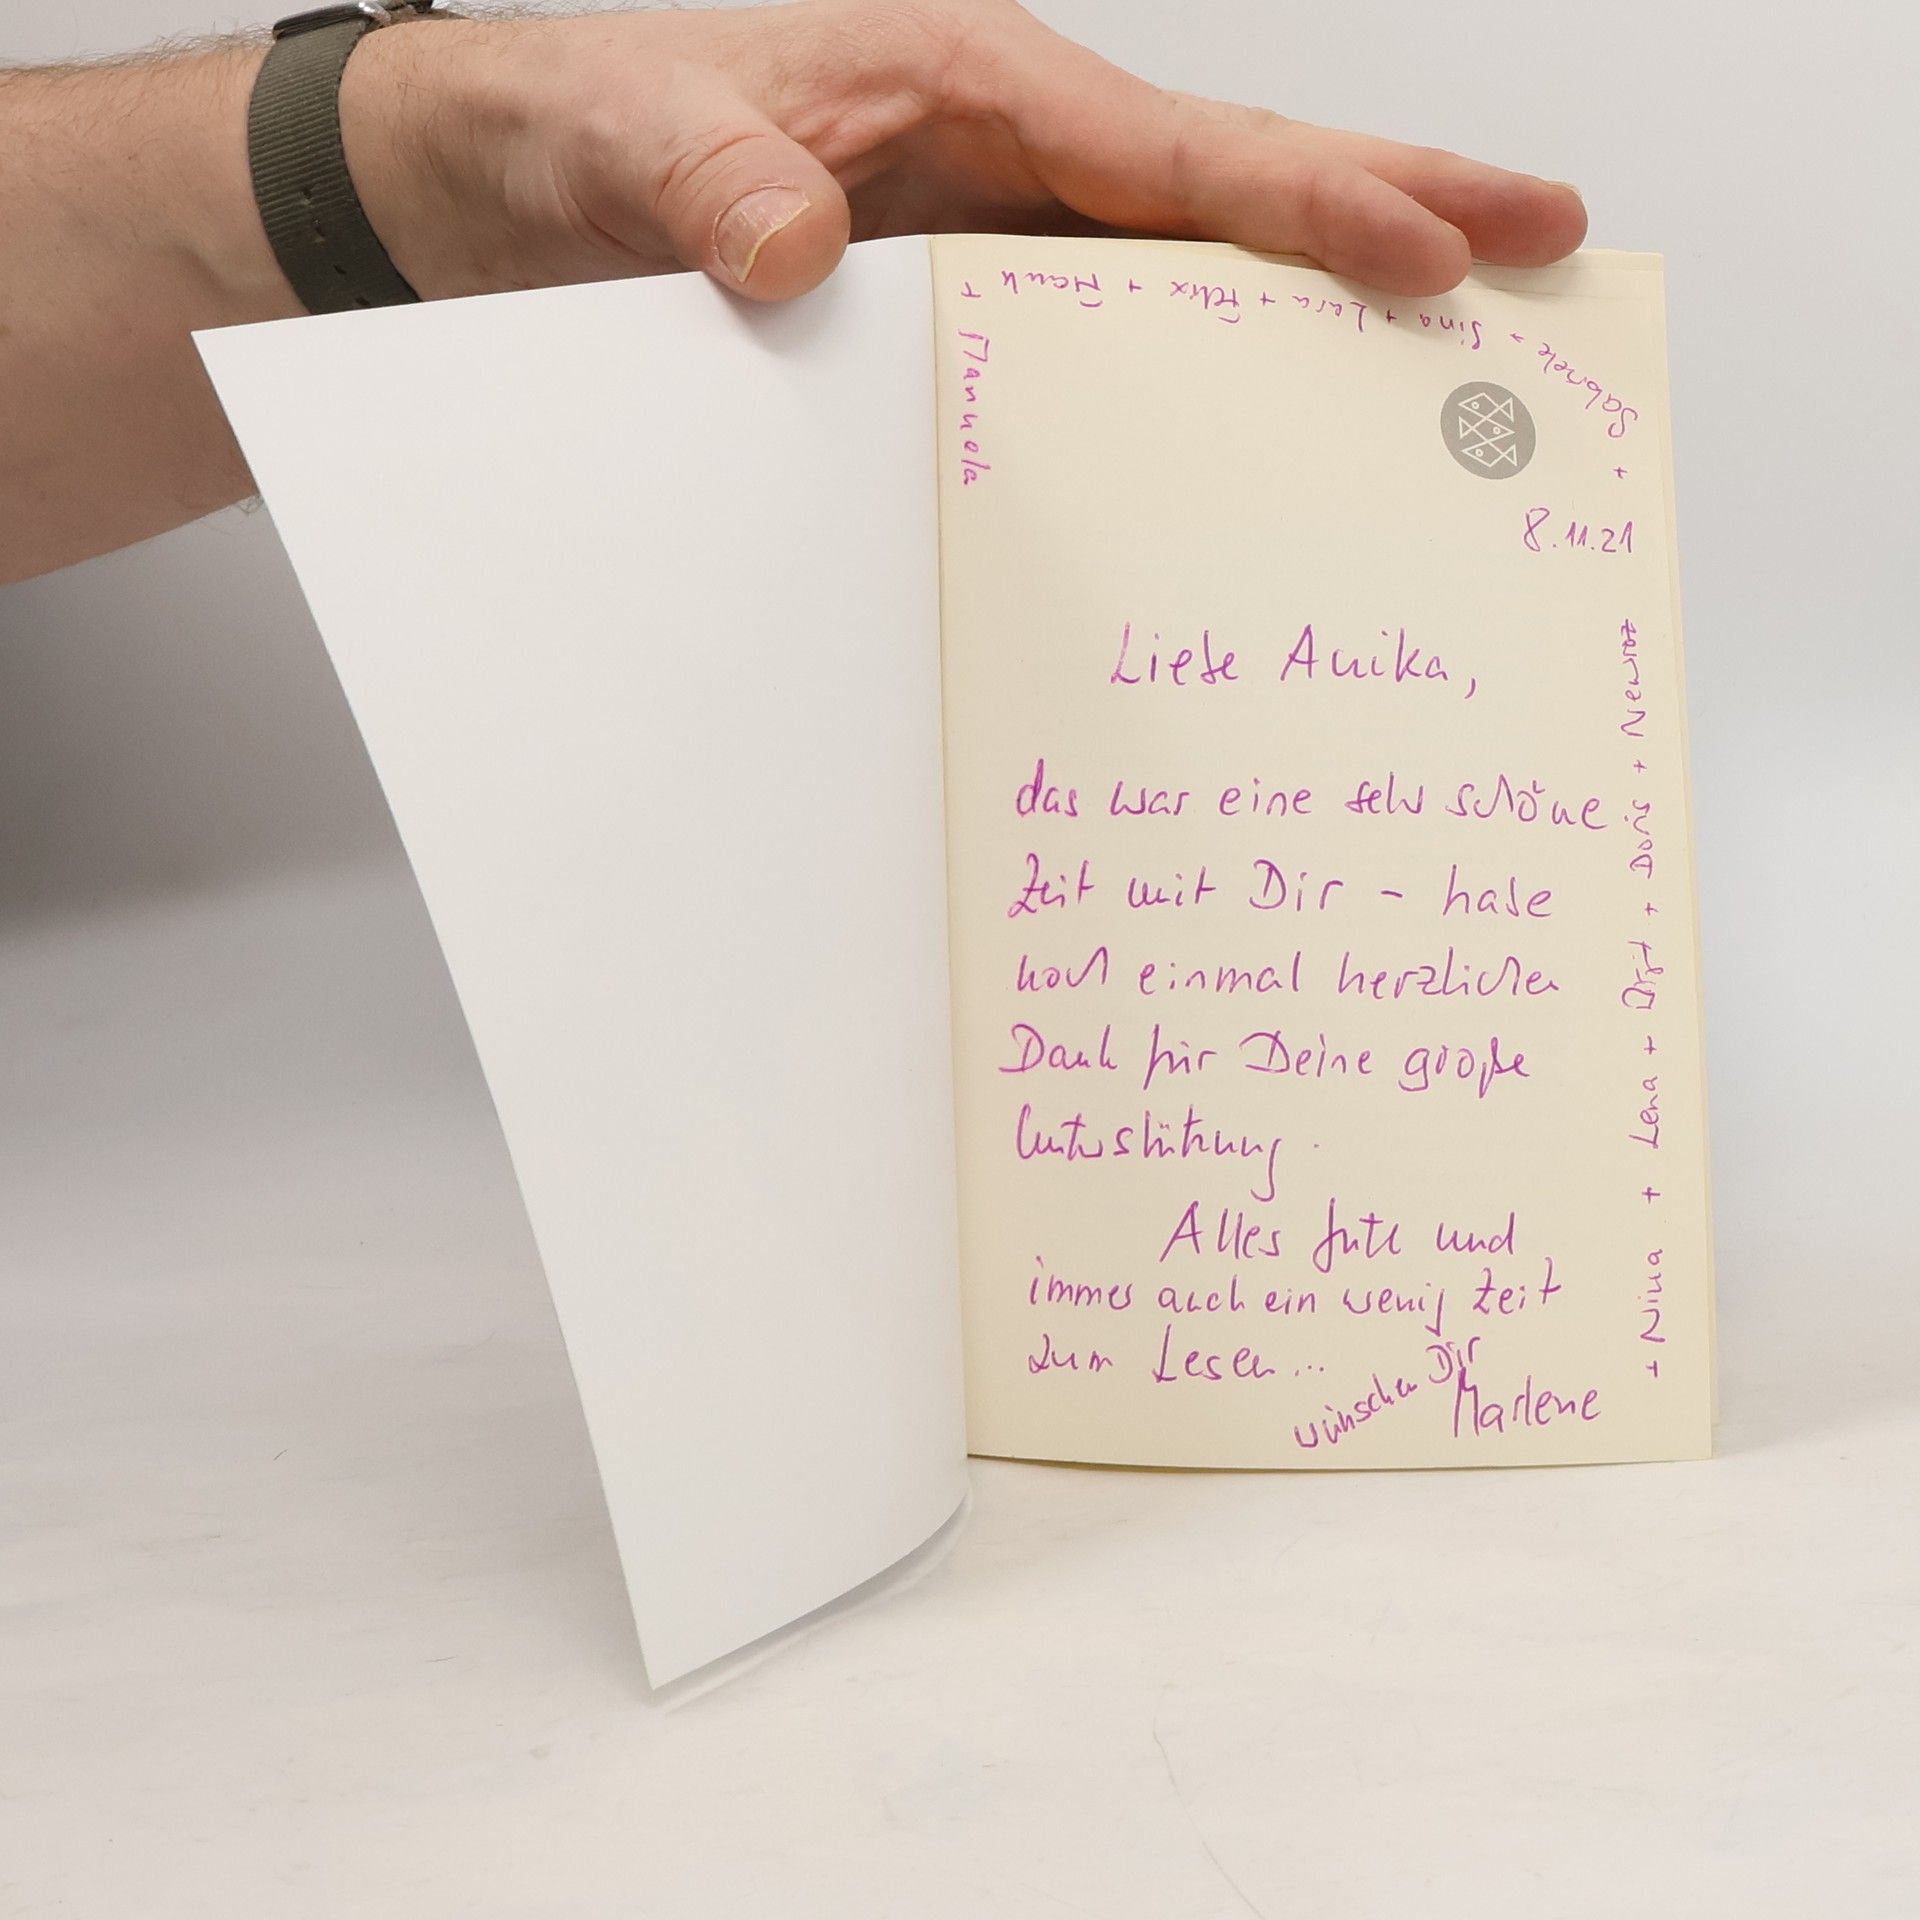 8.11.21
Liebe Anika,
das war eine sehr schöne
Zeit mit Dir – habe
noch einmal herzlichen
Dank für Deine große
Unterstützung.
Alles Gute und
immer auch ein wenig Zeit
zum Lesen...
wünschen Dir
Marlene
+ Nina + Lena + Birgit + Doris + Newroz
+ Gabriele + Sina + Lara + Felix + Frank +
Manuela